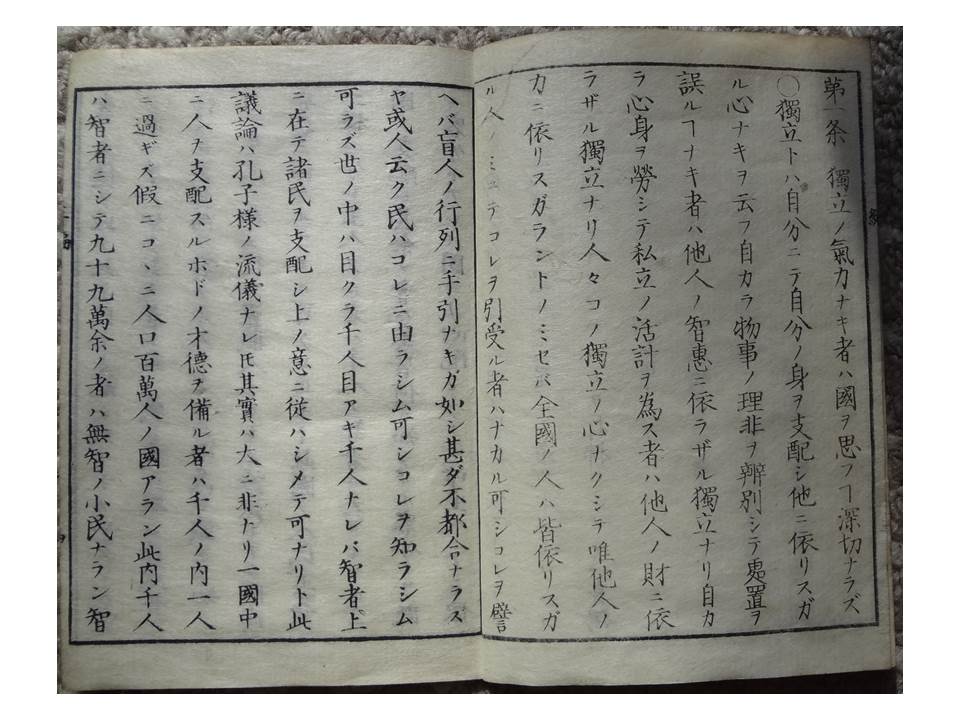 第一条 獨立ノ氣力ナキ者ハ國ヲ思フヿ深切ナラズ
〇獨立トハ自分ニテ自分ノ身ヲ支配シ他ニ依リスガ
ル心ナキヲ云フ自カラ物事ノ理非ヲ辨別シテ處置ヲ
誤ルヿナキ者ハ他人ノ智惠ニ依ラザル獨立ナリ自カ
ラ心身ヲ勞シテ私立ノ活計ヲ為ス者ハ他人ノ財ニ依
ラザル獨立ナリ人々コノ獨立ノ心ナクシテ唯他人ノ
力ニ依リスガラントノミセバ全國ノ人ハ皆依リスガ
ル人ノミニテコレヲ引受ル者ハナカル可シコレヲ譬
ヘバ盲人ノ行列ニ手引ナキガ如シ甚ダ不都合ナラズ
ヤ或人云ク民ハコレニ由ラシム可シコレヲ知ラシム
可ラズ世ノ中ハ目クラ千人目アキ千人ナレバ智者上
ニ在テ諸民ヲ支配シ上ノ意ニ従ハシメテ可ナリト此
議論ハ孔子様ノ流儀ナレ𪜈其實ハ大ニ非ナリ一國中
ニ人ヲ支配スルホドノ才德ヲ備ル者ハ千人ノ内一人
ニ過ギズ假ニコヽニ人口百萬人ノ國アラン此内千人
ハ智者ニシテ九十九萬余ノ者ハ無智ノ小民ナラン智